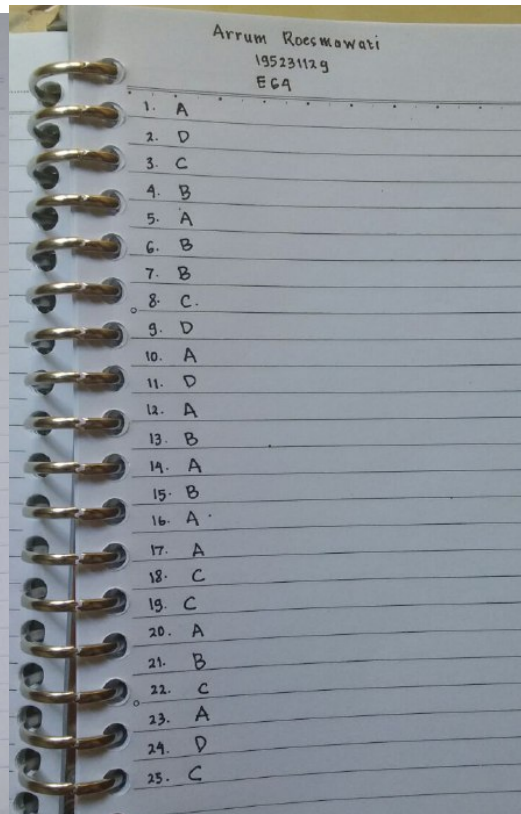 Arrum Roesmawati
195231129
E6A
1. A
2. D
3. C
4. B
5. A
6. B
7. B
8. C.
9. D
10. A
11. D
12. A
13. B
14. A
15. B
16. A
17. A
18. C
19. C
20. A
21. B
22. C
23. A
24. D
25. C